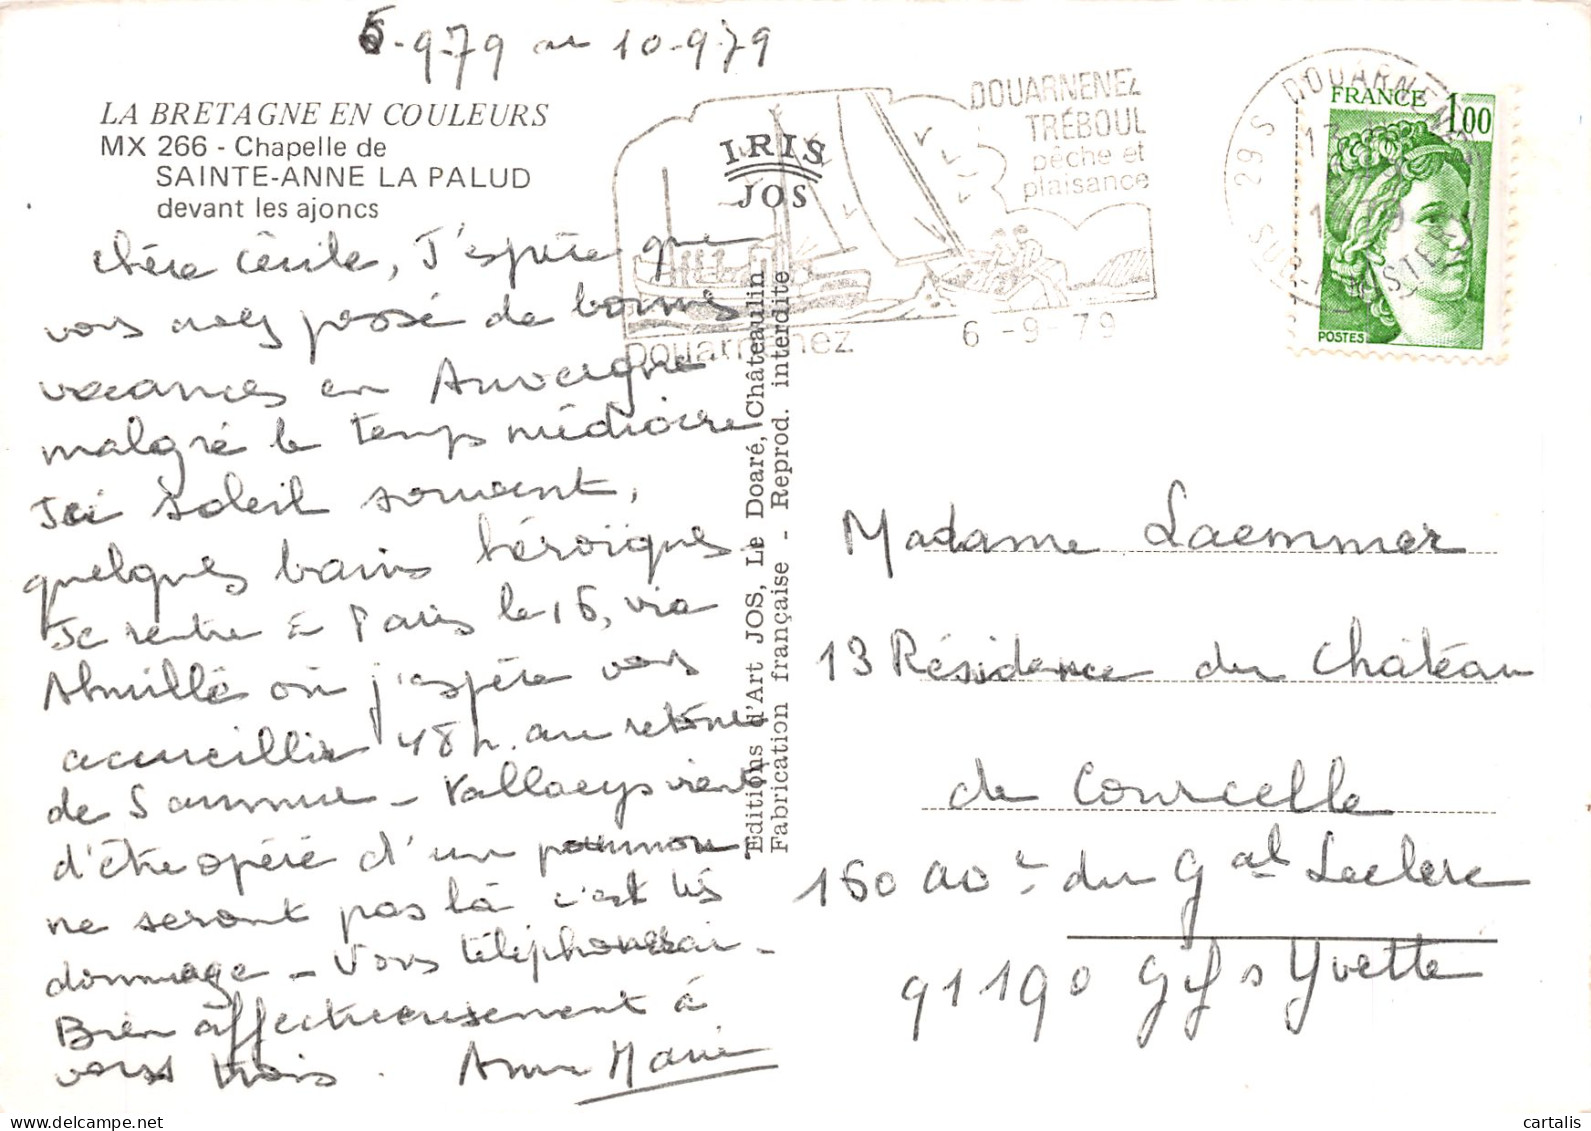 5-9-79 au 10-9-79
LA BRETAGNE EN COULEURS
MX 266 - Chapelle de
SAINTE-ANNE LA PALUD
devant les ajoncs
IRIS
JOS
DOUARNENEZ
TRÉBOUL
pêche et
plaisance
Douarnenez 6-9-79
29 S DOUARNENEZ
SUD-FINISTERE
FRANCE 1,00
POSTES
Chère Cécile, J'espère que
vous avez passé de bonnes
vacances en Auvergne
malgré le temps médiocre
Ici soleil souvent,
quelques bains héroïques
Je rentre à Paris le 16, via
où j'espère vous
accueillir 48 h. au retour
de Saumur - Vallaeys vient
d'être opéré d'un poumon
ne seront pas là c'est très
dommage - Vous téléphonerai -
Bien affectueusement à
vous trois. Anne Marie
Editions d'Art JOS, Le Doaré, Châteaulin
Fabrication française - Reprod. interdite
Madame Laemmer
13 Résidence du Château
de Courcelle
160 av. du Gal Leclerc
91190 Gif s Yvette
www.delcampe.net
cartalis